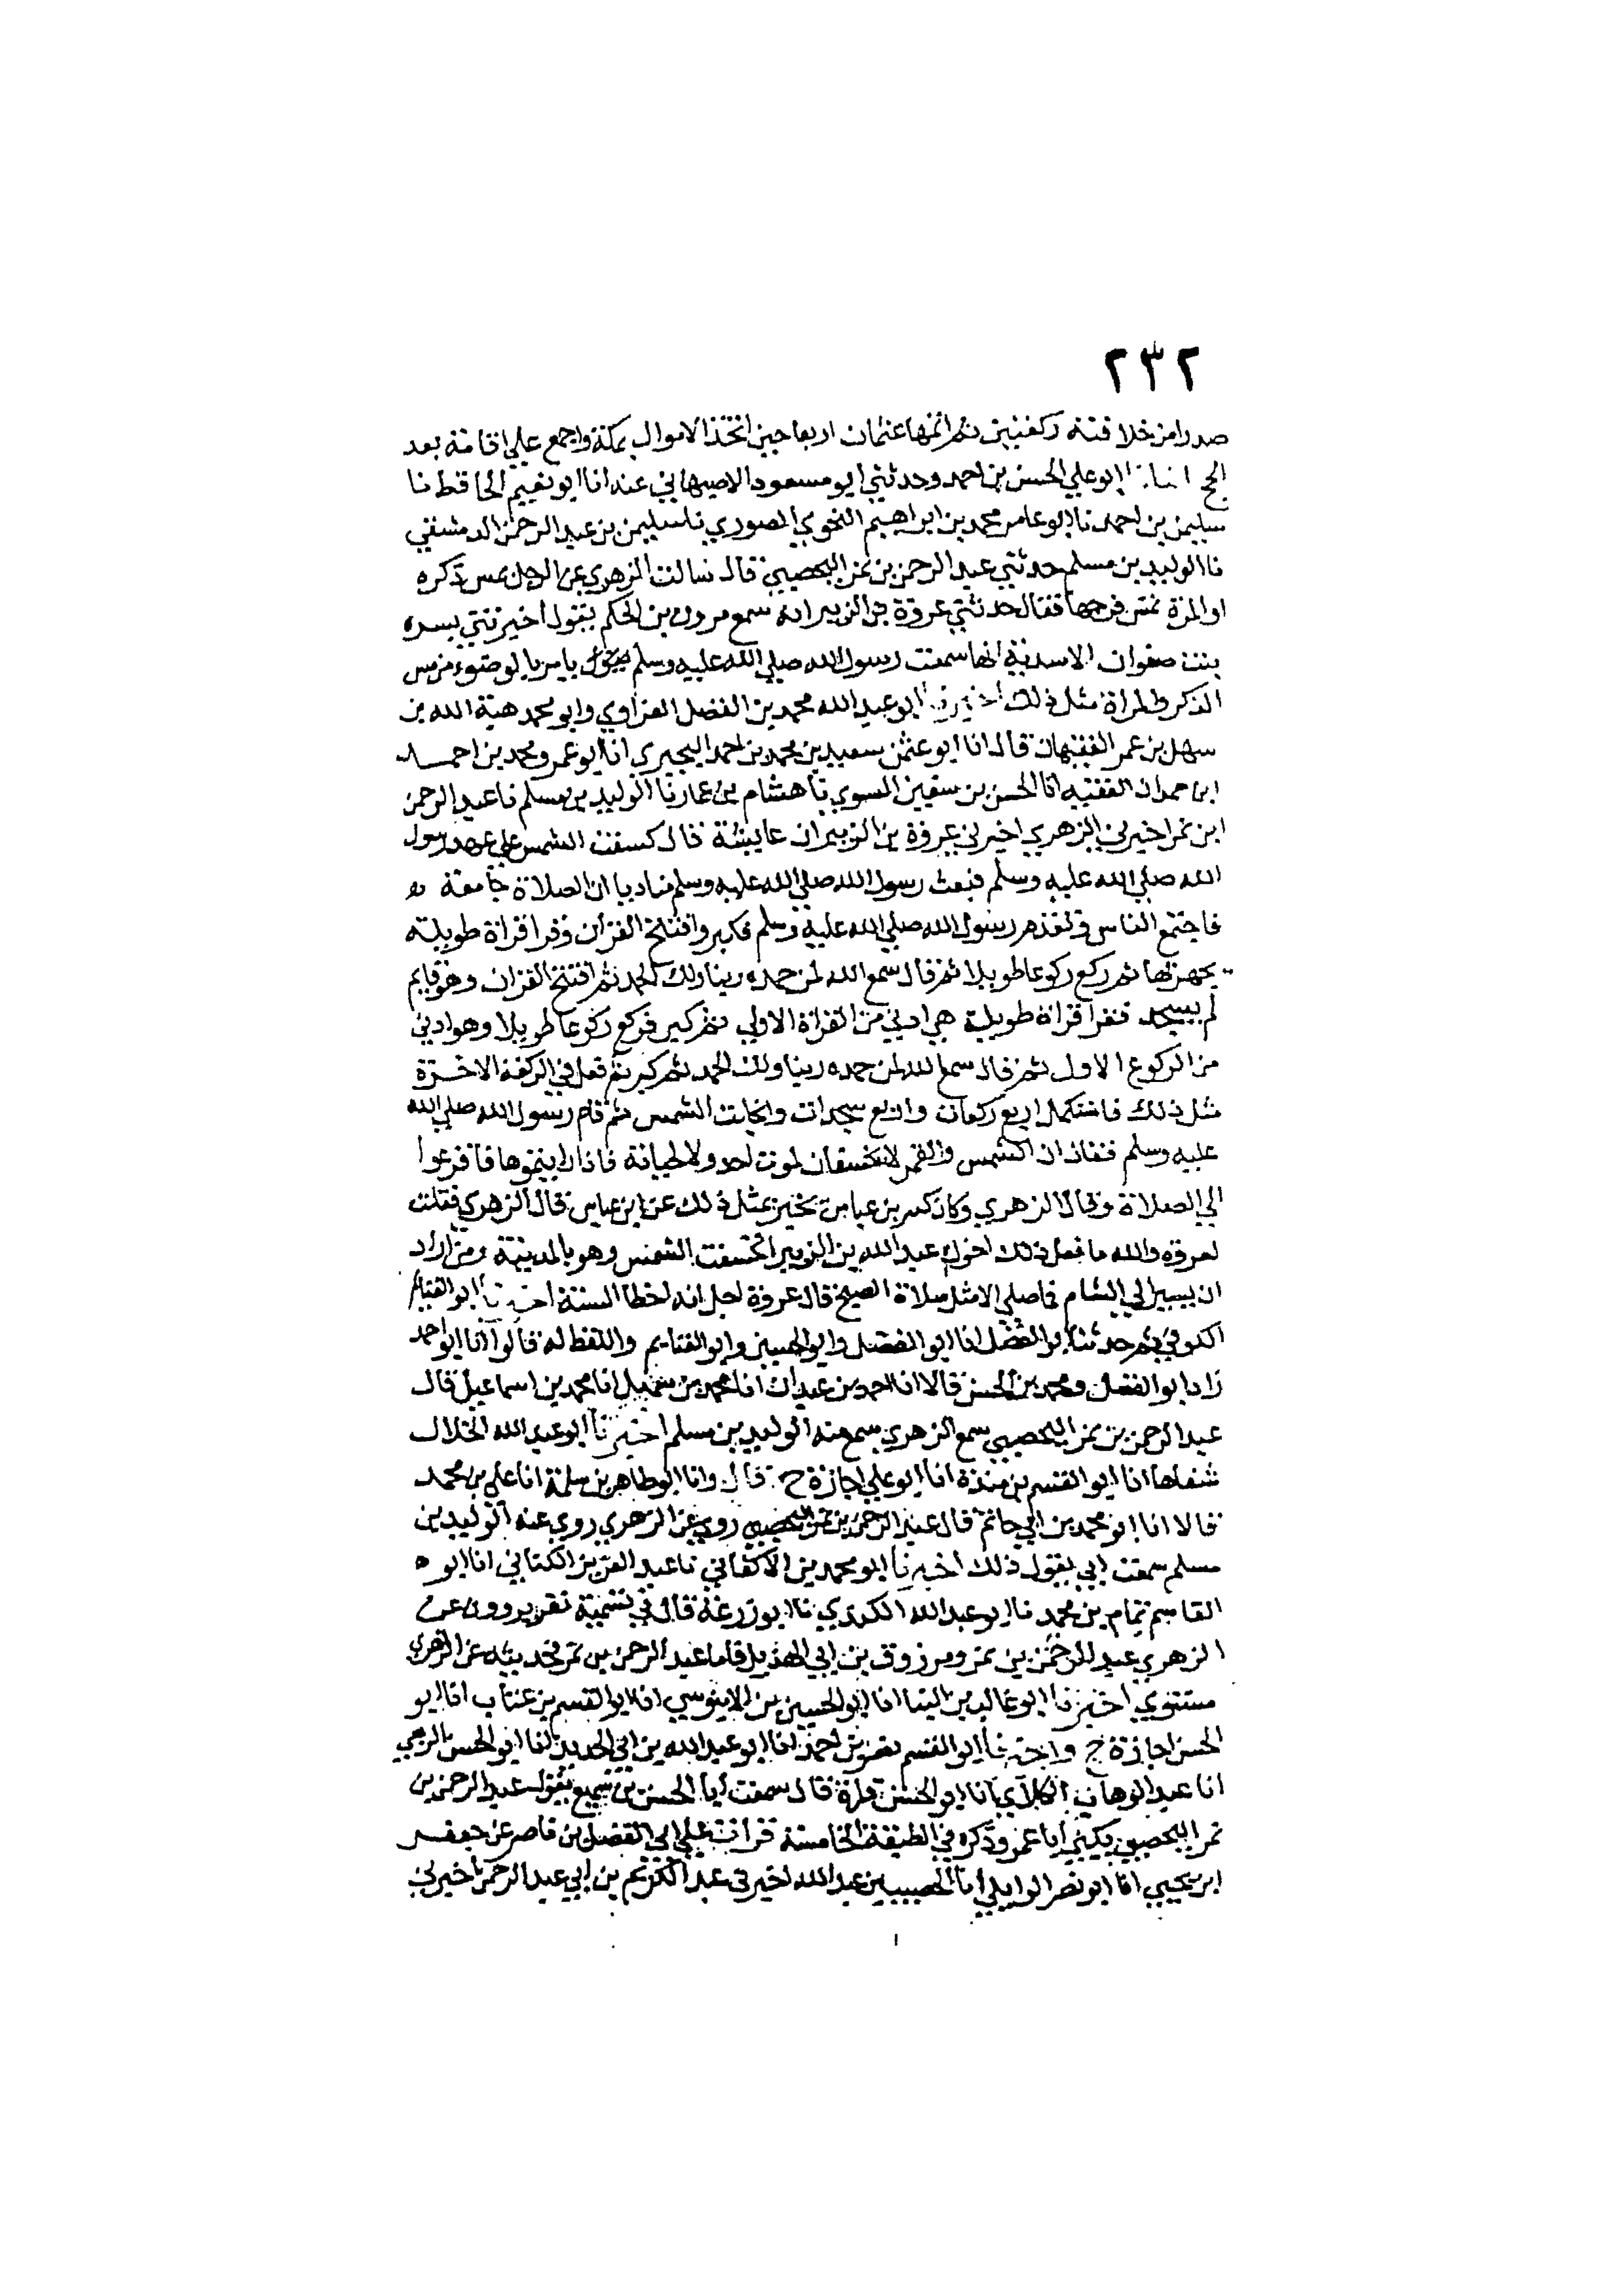 ٢٣٢
صدرا من خلافته ركعتين ثم اتمها عثمان اربعا حين اتخذ الاموال بمكة واجمع علي اقامة بعد
الحج انبانا ابو علي الحسن بن احمد وحدثني ابو مسعود الاصبهاني عنه انا ابو نعيم الحافظ نا
سليمن بن احمد نا ابو عامر محمد بن ابراهيم النحوي الصوري نا سليمن بن عبد الرحمن الدمشقي
نا الوليد بن مسلم حدثني عبد الرحمن بن نمر اليحصبي قال سالت الزهري عن الرجل يمس ذكره
او المراة تمس فرجها فقال حدثني عروة بن الزبير انه سمع مرون بن الحكم يقول اخبرتني بسره
بنت صفوان الاسدية انها سمعت رسول الله صلي الله عليه وسلم يامر بالوضوء من مس
الذكر والمراة مثل ذلك اخبرنا ابو عبد الله محمد بن الفضل الفراوي وابو محمد هبة الله بن
سهل بن عمر الفقيهان قالا انا ابو عثمن سعيد بن محمد بن احمد البحيري انا ابو عمرو محمد بن احمد
ابن حمدان الفقيه انا الحسن بن سفين النسوي نا هشام بن عمار نا الوليد بن مسلم نا عبد الرحمن
ابن نمر اخبرني الزهري اخبرني عروة بن الزبير ان عايشة قال كسفت الشمس علي عهد رسول
الله صلي الله عليه وسلم فبعث رسول الله صلي الله عليه وسلم مناديا ان الصلاة جامعة
فاجتمع الناس وتقدم رسول الله صلي الله عليه وسلم فكبر وافتتح القران وقرا قراة طويلة
يجهر بها ثم ركع ركوعا طويلا ثم قال سمع الله لمن حمده ربنا ولك الحمد ثم افتتح القران وهو قايم
لم يسجد فقرا قراة طويلة هي ادني من القراة الاولي ثم كبر فركع ركوعا طويلا وهو ادني
من الركوع الاول ثم قال سمع الله لمن حمده ربنا ولك الحمد ثم كبر ثم فعل في الركعة الاخرة
مثل ذلك فاستكمل اربع ركعات واربع سجدات وانجلت الشمس ثم قام رسول الله صلي الله
عليه وسلم فقال ان الشمس والقمر لا يخسفان لموت احد ولا لحياته فاذا رايتموها فافزعوا
الي الصلاة وقال الزهري وكان كثير بن عباس يخبر بمثل ذلك عن ابن عباس قال الزهري فقلت
لعروة والله ما فعل ذلك اخوك عبد الله بن الزبير انخسفت الشمس وهو بالمدينة ومن اراد
ان يسير الي الشام فما صلي الا مثل صلاة الصبح قال عروة اجل انه اخطا السنة اخبرنا ابو الغنايم
الكوفي ثم حدثنا ابو الفضل انا ابو الفضل وابو الحسين وابو الغنايم واللفظ له قالوا انا ابو احمد
زاد ابو الفضل ومحمد بن الحسن قالا انا احمد بن عبدان انا محمد بن سهيل انا محمد بن اسماعيل قال
عبد الرحمن بن نمر اليحصبي سمع الزهري سمع منه الوليد بن مسلم اخبرنا ابو عبد الله الخلال
شفاها انا ابو القسم بن مندة انا ابو علي اجازة ح قال وانا ابو طاهر بن سلمة انا علي بن محمد
قالا انا ابو محمد بن ابي حاتم قال عبد الرحمن بن نمر اليحصبي روي عن الزهري روي عنه الوليد بن
مسلم سمعت ابي يقول ذلك اخبرنا ابو محمد بن الاكفاني نا عبد العزيز الكتاني انا ابو
القاسم تمام بن محمد نا ابو عبد الله الكندي نا ابو زرعة قال في تسمية نفر يروون عن
الزهري عبد الرحمن بن نمر ومرزوق بن ابي الهذيل فاما عبد الرحمن بن نمر فحديثه عن الزهري
مستوي اخبرنا ابو غالب بن البنا انا ابو الحسين بن الابنوسي انا ابو القسم بن عتاب انا ابو
الحسن اجازة ح واخبرنا ابو القسم نصر بن احمد انا ابو عبد الله بن ابي الحديد انا ابو الحسن الربعي
انا عبد الوهاب الكلابي انا ابو الحسن قراة قال سمعت ابا الحسن بن سميع يقول عبد الرحمن بن
نمر اليحصبي يكني ابا عمرو ذكره في الطبقة الخامسة قرات علي ابي الفضل بن ناصر عن جعفر
ابن يحيي انا ابو نصر الوايلي انا الخصيب بن عبد الله اخبرني عبد الكريم بن ابي عبد الرحمن اخبرني